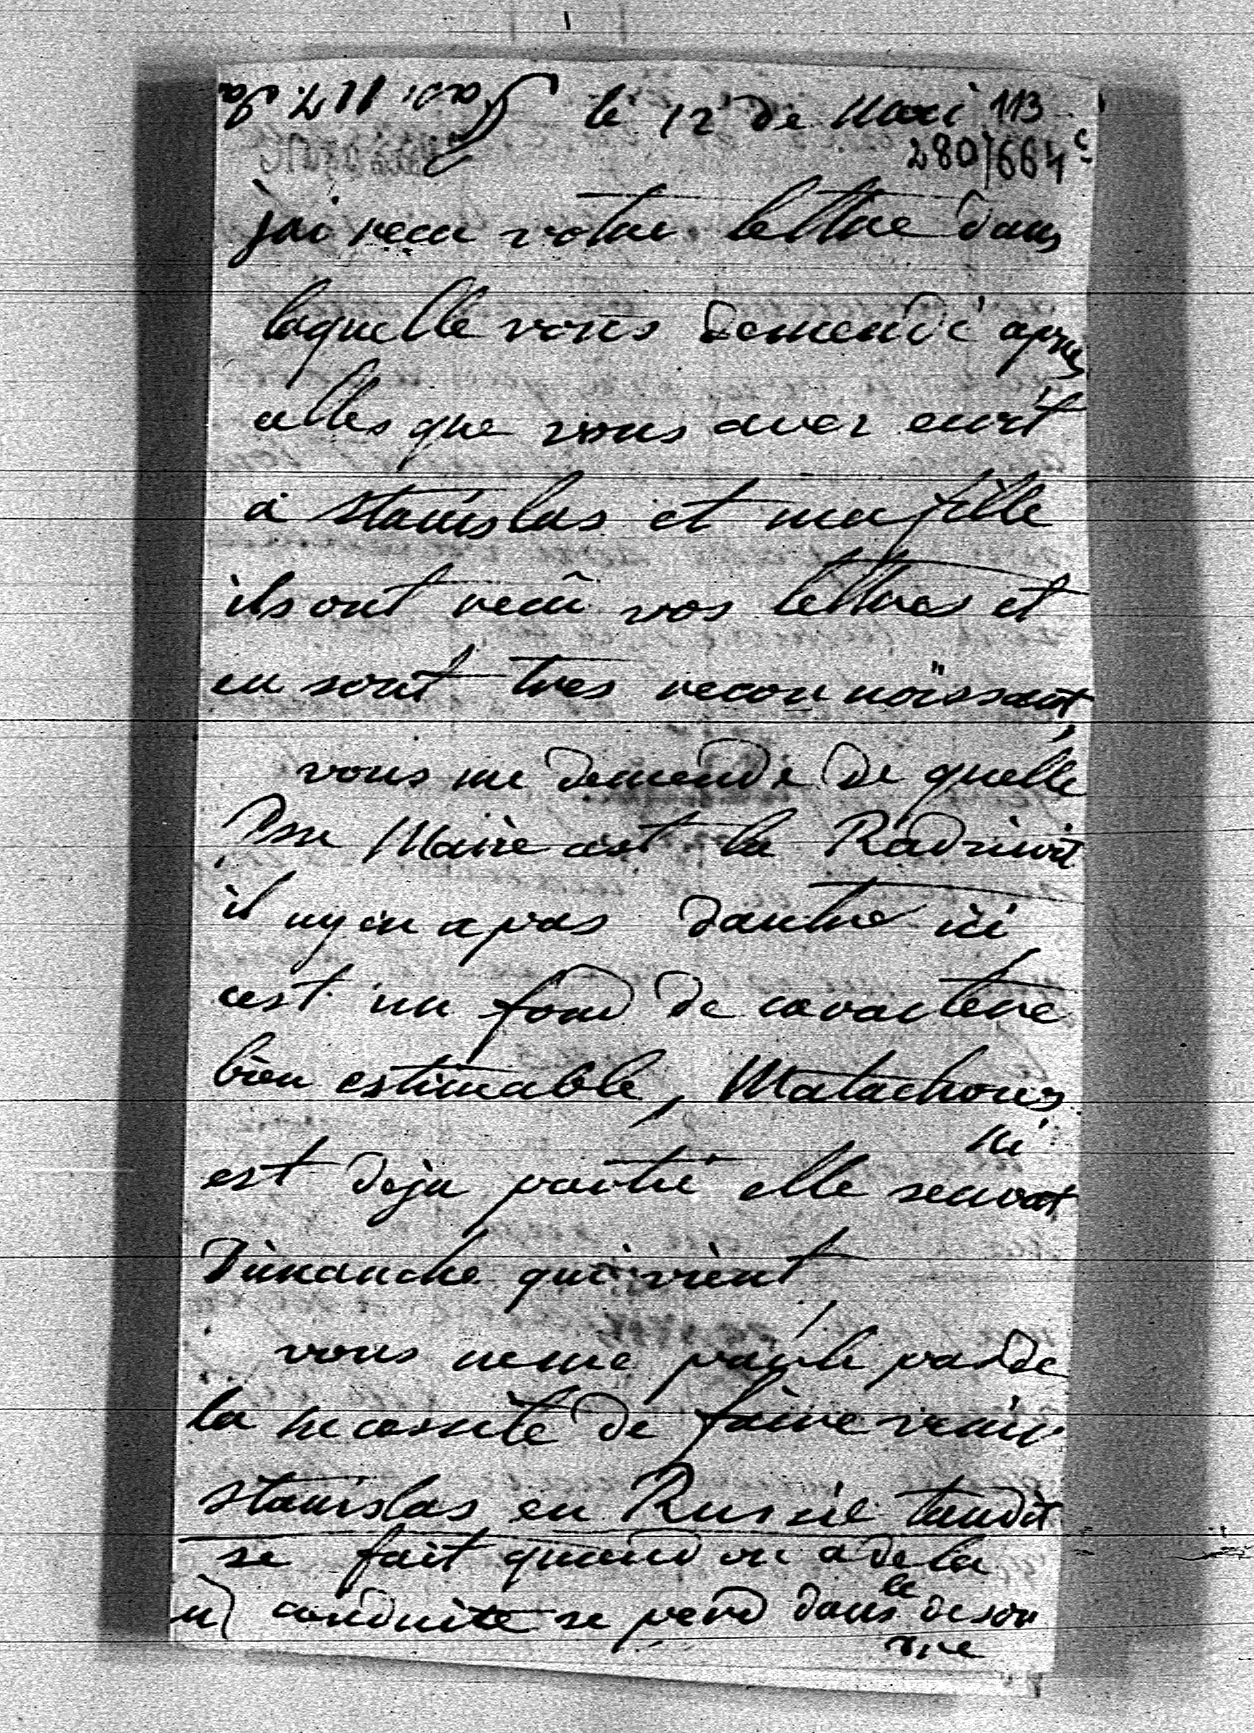 le 12 de Mai 113
280/664 c
jai recu votre lettre dans
laquelle vous demendé apres
celles que vous avez ecrit
a stanislas et ma fille
ils ont recû vos lettres et
en sont tres reconnoïssant,
vous me demende de quelle
Maire cest la Radzivil
il ny en a pas dautre ici
cest un fond de caractere
bien estimable, Matachows
ki
est deja partie elle serat
Dimanche qui vient
vous neme parle pas de
la necessité de faire venir
stanislas en Russie tandit
se fait quand on a de la
conduite se perd dans le de son